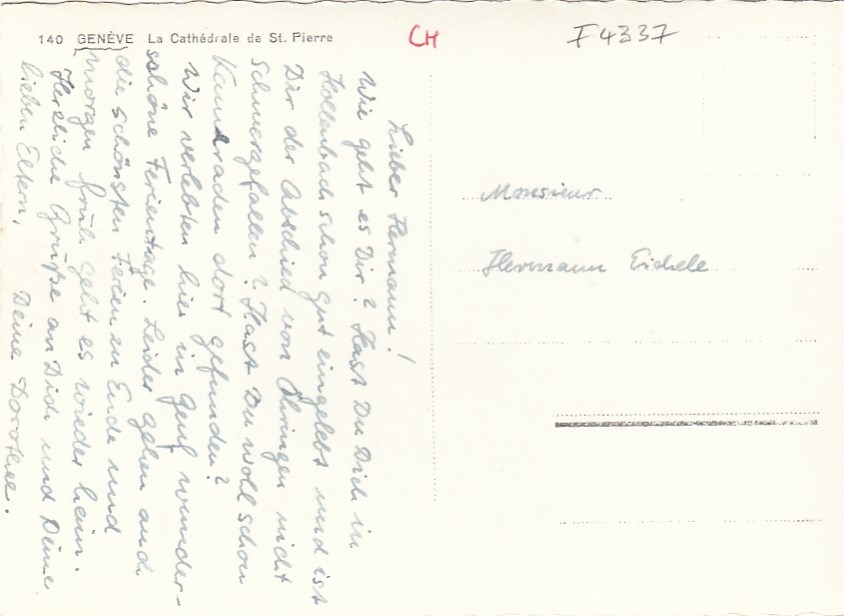 140 GENÈVE La Cathédrale de St. Pierre
CH
F4337
Lieber Hermann!
Wie geht es Dir? Hast Du Dich in
Hollenbach schon gut eingelebt und ist
Dir der Abschied von Öhringen nicht
schwergefallen? Hast Du wohl schon
Kameraden dort gefunden?
Wir verlebten hier in Genf wunder-
schöne Ferientage. Leider gehen auch
die schönsten Ferien zu Ende und
morgen früh geht es wieder heim.
Herzliche Grüße an Dich und Deine
lieben Eltern,
Deine Dorothee.
Monsieur
Hermann Eichele